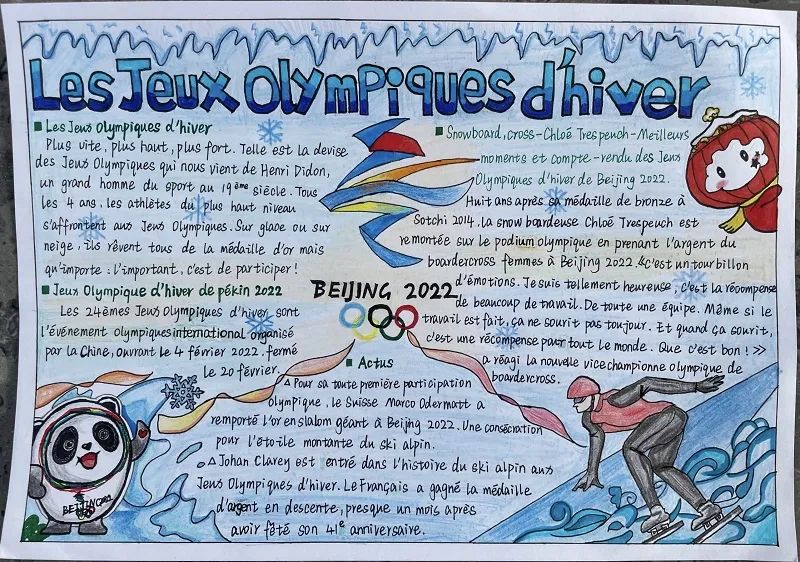 Les Jeux Olympiques d'hiver
Les Jeux Olympiques d'hiver
Plus vite, plus haut, plus fort. Telle est la devise
des Jeux Olympiques qui nous vient de Henri Didon,
un grand homme du sport au 19ème siècle. Tous
les 4 ans, les athlètes du plus haut niveau
s'affrontent aux Jeux Olympiques. Sur glace ou sur
neige, ils rêvent tous de la médaille d'or mais
qu'importe : l'important, c'est de participer !
Jeux Olympique d'hiver de pékin 2022
Les 24èmes Jeux Olympiques d'hiver sont
l'événement olympiques international organisé
par la Chine, ouvront le 4 février 2022, fermé
le 20 février.
BEIJING 2022
Snowboard, cross-Chloé Trespeuch-Meilleurs
moments et compte-rendu des Jeux
Olympiques d'hiver de Beijing 2022.
Huit ans après sa médaille de bronze à
Sotchi 2014, la snowboardeuse Chloé Trespeuch est
remontée sur le podium olympique en prenant l'argent du
boardercross femmes à Beijing 2022. «C'est un tourbillon
d'émotions. Je suis tellement heureuse, c'est la récompense
de beaucoup de travail. De toute une équipe. Même si le
travail est fait, ça ne sourit pas toujour. Et quand ça sourit,
c'est une récompense pour tout le monde. Que c'est bon ! »
a réagi la nouvelle vice championne olympique de
boardercross.
Actus
Pour sa toute première participation
olympique, le Suisse Marco Odermatt a
remporté l'or en slalom géant à Beijing 2022. Une consécration
pour l'étoile montante du ski alpin.
Johan Clarey est entré dans l'histoire du ski alpin aux
Jeux Olympiques d'hiver. Le Français a gagné la médaille
d'argent en descente, presque un mois après
avoir fêté son 41e anniversaire.
BEIJING 2022